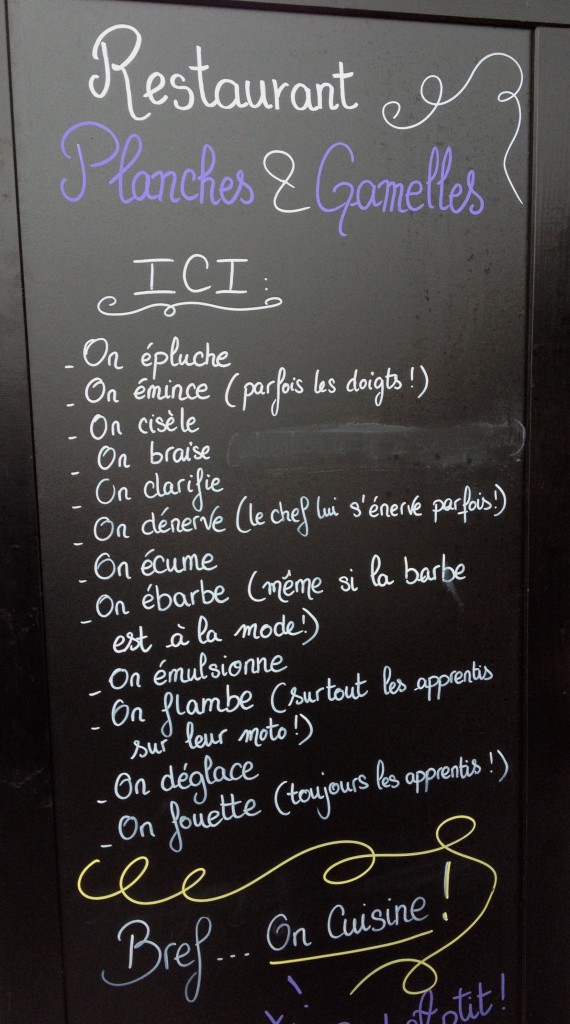 Restaurant
Planches & Gamelles
ICI :
- On épluche
- On émince (parfois les doigts !)
- On cisèle
- On braise
- On clarifie
- On dénerve (le chef lui s'énerve parfois !)
- On écume
- On ébarbe (même si la barbe
est à la mode !)
- On émulsionne
- On flambe (surtout les apprentis
sur leur moto !)
- On déglace
- On fouette (toujours les apprentis !)
Bref... On Cuisine !